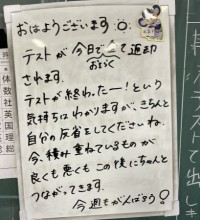 おはようございます
テストが今日全て返却
おそらく
されます。
テストが終わったー！という
気持ちはわかりますが、きちんと
自分の反省をしてくださいね。
今、積み重ねているものが
良くも悪くもこの後にちゃんと
つながってきます。
今週もがんばろう！
体数社英国理総